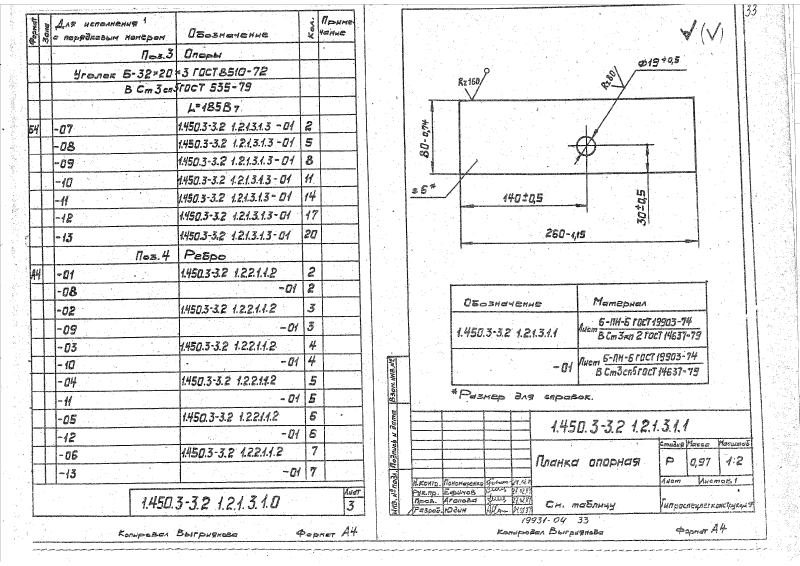 Формат
Зона
Для исполнения 1
с порядковым номером
Обозначение
Кол.
Приме-
чание
Поз.3 Опоры
Уголок Б-32×20×3 ГОСТ 8510-72
В Ст3сп5 ГОСТ 535-79
L=185
БЧ -07 1.450.3-3.2 1.2.1.3.1.3-01 2
-08 1.450.3-3.2 1.2.1.3.1.3-01 5
-09 1.450.3-3.2 1.2.1.3.1.3-01 8
-10 1.450.3-3.2 1.2.1.3.1.3-01 11
-11 1.450.3-3.2 1.2.1.3.1.3-01 14
-12 1.450.3-3.2 1.2.1.3.1.3-01 17
-13 1.450.3-3.2 1.2.1.3.1.3-01 20
Поз.4 Ребро
А4 -01 1.450.3-3.2 1.2.2.1.1.2 2
-08 -01 2
-02 1.450.3-3.2 1.2.2.1.1.2 3
-09 -01 3
-03 1.450.3-3.2 1.2.2.1.1.2 4
-10 -01 4
-04 1.450.3-3.2 1.2.2.1.1.2 5
-11 -01 5
-05 1.450.3-3.2 1.2.2.1.1.2 6
-12 -01 6
-06 1.450.3-3.2 1.2.2.1.1.2 7
-13 -01 7
1.450.3-3.2 1.2.1.3.1.0
Лист
3
Копировал Выгриянова Формат А4
33
(√)
Rz160
Rz80
Ф19+0,5
80-0,74
s6*
140±0,5
30±0,5
260-1,15
Обозначение Материал
1.450.3-3.2 1.2.1.3.1.1 Лист Б-ПН-6 ГОСТ 19903-74
В Ст3кп2 ГОСТ 14637-79
-01 Лист Б-ПН-6 ГОСТ 19903-74
В Ст3сп5 ГОСТ 14637-79
*Размер для справок.
Инв.№подл. Подпись и дата Взам.инв.№
1.450.3-3.2 1.2.1.3.1.1
Планка опорная
Стадия Масса Масштаб
Р 0,97 1:2
Лист Листов 1
Н.контр. Пономаренко
Рук.пр. Ефимов
Пров. Агапова
Разраб. Юдин
См. таблицу
Гипроспецлегконструкция
19931-04 33
Копировал Выгриянова Формат А4